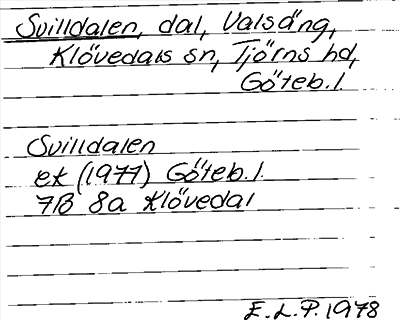 Svilldalen, dal, Valsäng,
Klövedals sn, Tjörns hd,
Göteb. l.
Svilldalen
ek (1977) Göteb. l.
7B 8a Klövedal
E. L. P. 1978